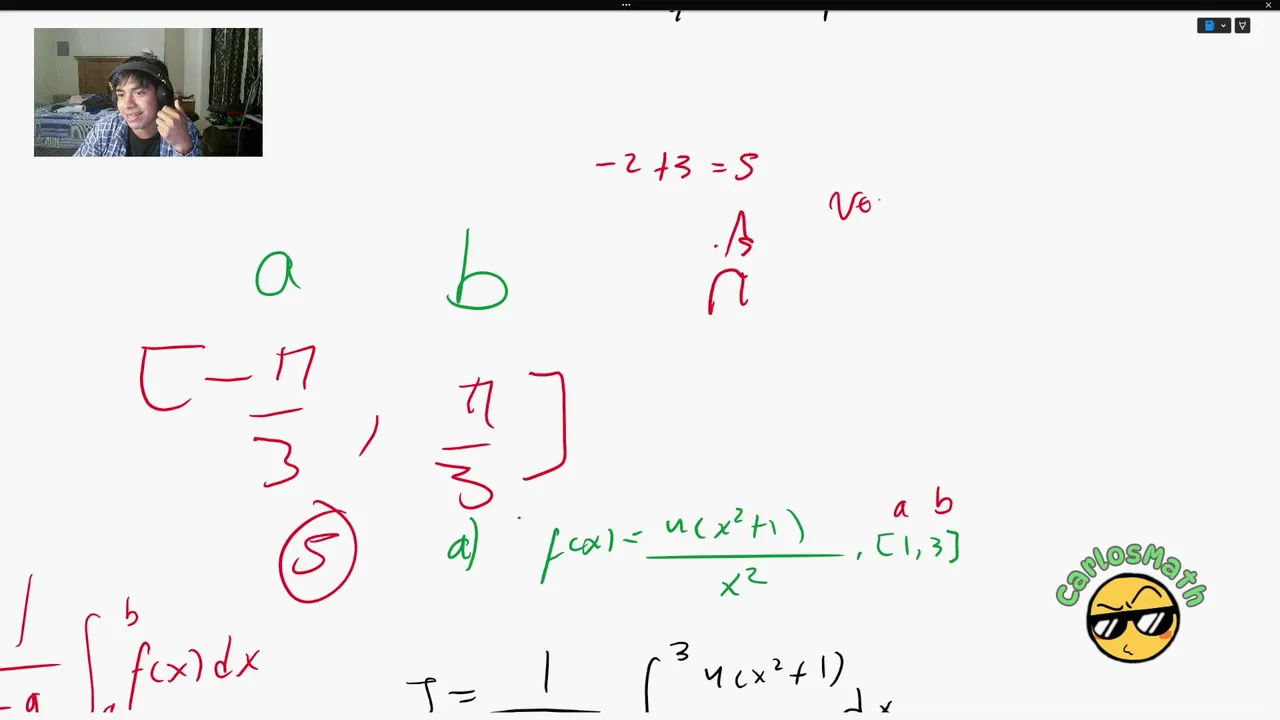 -2+3=5
a b
[-π/3, π/3]
5
a) f(x)=4(x²+1)/x², [1,3]
a b
∫ b f(x)dx
1
-a
a
= 1 ∫ 3 4(x²+1) dx
CarlosMath